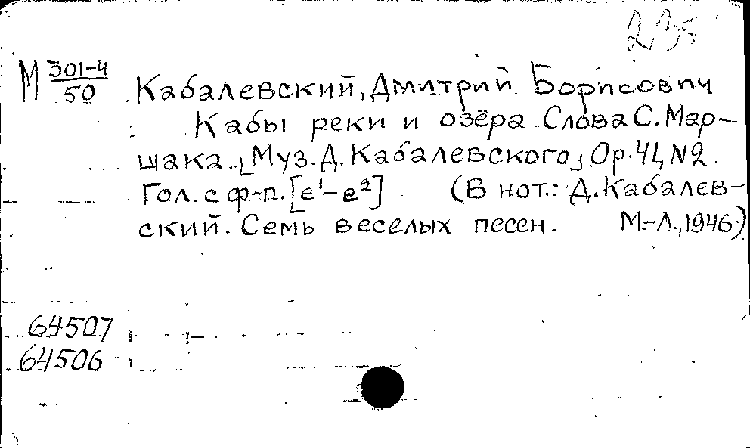 235
М 301-4/50
Кабалевский, Дмитрий Борисович
Кабы реки и озёра. Слова С. Мар-
шака. [Муз. Д. Кабалевского] Op. 41, N2.
Гол. с ф-п. [e¹-e²] (В нот.: Д. Кабалев-
ский. Семь веселых песен. М.-Л., 1946)
64507
64506